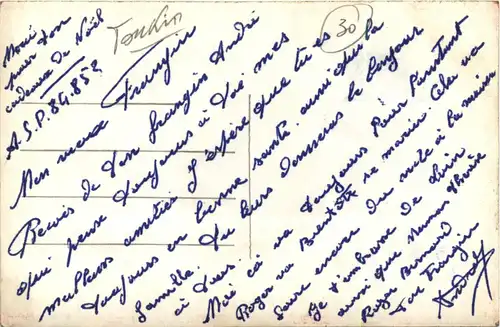 Merci
pour ton
cadeau de Noël
A.S.P. 84.853
Tonkin
30
Mon vieux Frangin
Reçois de ton frangin André
qui pense toujours à toi mes
meilleurs amitiés J'espère que tu es
toujours en bonne santé ainsi que la
famille. Tu leurs donneras le bonjour
à tous.
Moi ça va toujours Pour l'instant
Roger va bientôt se marier. Cela va
faire encore du vide à la maison
Je t'embrasse de loin
ainsi que maman Thérèse
Roger Bernard
Ton Frangin
André